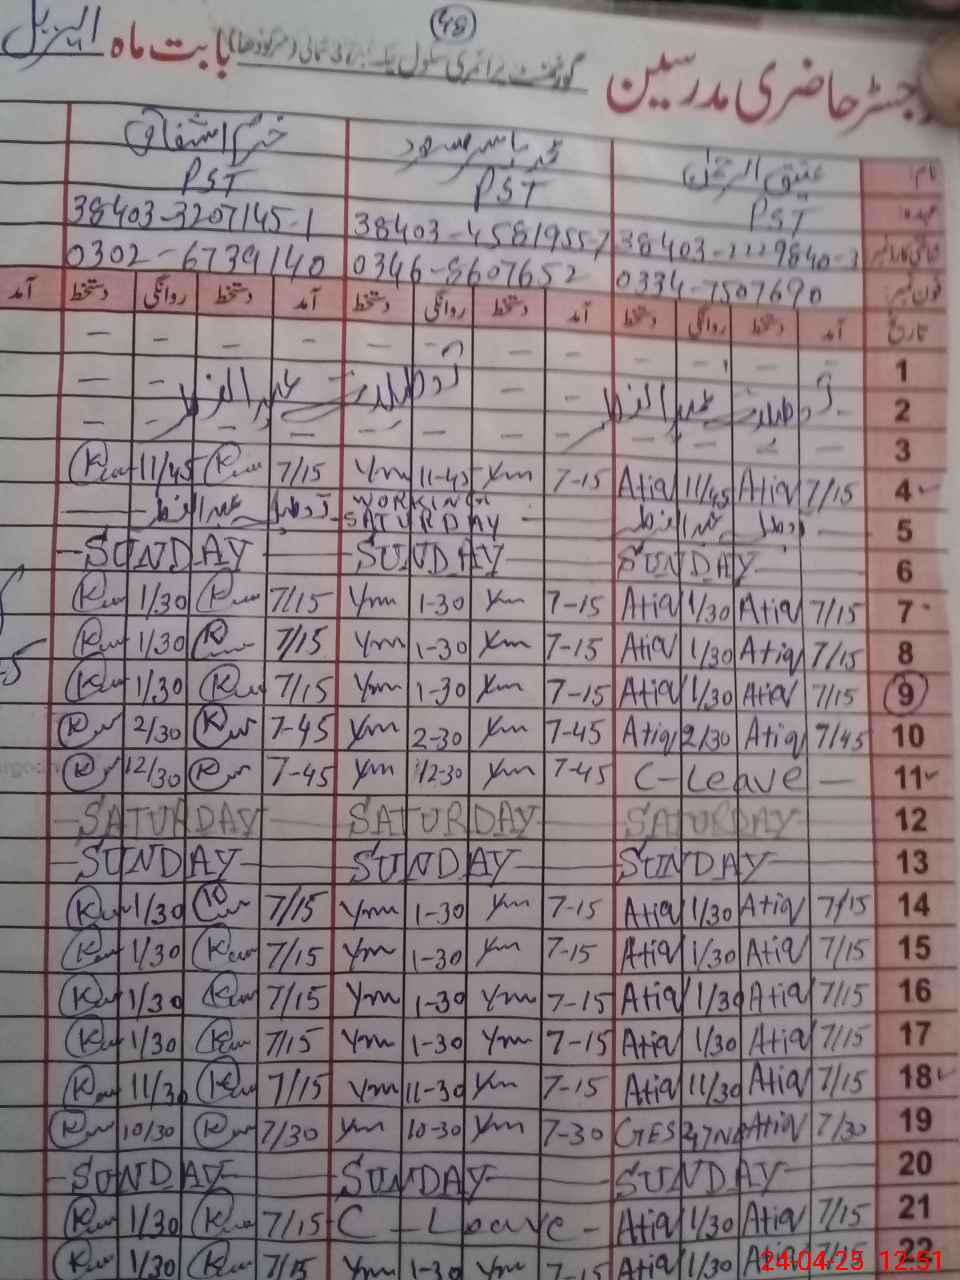 48
رجسٹر حاضری مدرسین گورنمنٹ پرائمری سکول بابت ماہ اپریل
نام عتیق الرحمن محمد یاسر سعود خرم اشفاق
عہدہ PST PST PST
38403-2229840-3 38403-4581955-7 38403-3207145-1
فون نمبر 0334-7507690 0346-8607652 0302-6739140
تاریخ آمد دستخط روانگی دستخط آمد دستخط روانگی دستخط آمد دستخط روانگی دستخط آمد
1 - - - - - - - - - -
2 عید الفطر عید الفطر
3 - - - - - - - - - -
4 7/15 Atiq 11/45 Atiq 7-15 Ym 11-45 Ym 7/15 K 11/45 K
5 عید الفطر WORKING SATURDAY عید الفطر
6 SUNDAY SUNDAY SUNDAY
7 7/15 Atiq 1/30 Atiq 7-15 Ym 1-30 Ym 7/15 K 1/30 K
8 7/15 Atiq 1/30 Atiq 7-15 Ym 1-30 Ym 7/15 K 1/30 K
9 7/15 Atiq 1/30 Atiq 7-15 Ym 1-30 Ym 7/15 K 1/30 K
10 7/45 Atiq 2/30 Atiq 7-45 Ym 2-30 Ym 7-45 K 2/30 K
11 C-Leave - 7-45 Ym 12-30 Ym 7-45 K 12/30 K
12 SATURDAY SATURDAY SATURDAY
13 SUNDAY SUNDAY SUNDAY
14 7/15 Atiq 1/30 Atiq 7-15 Ym 1-30 Ym 7/15 K 1/30 K
15 7/15 Atiq 1/30 Atiq 7-15 Ym 1-30 Ym 7/15 K 1/30 K
16 7/15 Atiq 1/30 Atiq 7-15 Ym 1-30 Ym 7/15 K 1/30 K
17 7/15 Atiq 1/30 Atiq 7-15 Ym 1-30 Ym 7/15 K 1/30 K
18 7/15 Atiq 11/30 Atiq 7-15 Ym 11-30 Ym 7/15 K 11/30 K
19 7/30 Atiq GES 7-30 Ym 10-30 Ym 7/30 K 10/30 K
20 SUNDAY SUNDAY SUNDAY
21 7/15 Atiq 1/30 Atiq C - Leave - 7/15 K 1/30 K
22 Atiq 1/30 Atiq 7-15 Ym 1-30 Ym 7/15 K 1/30 K
24-04-25 12:51